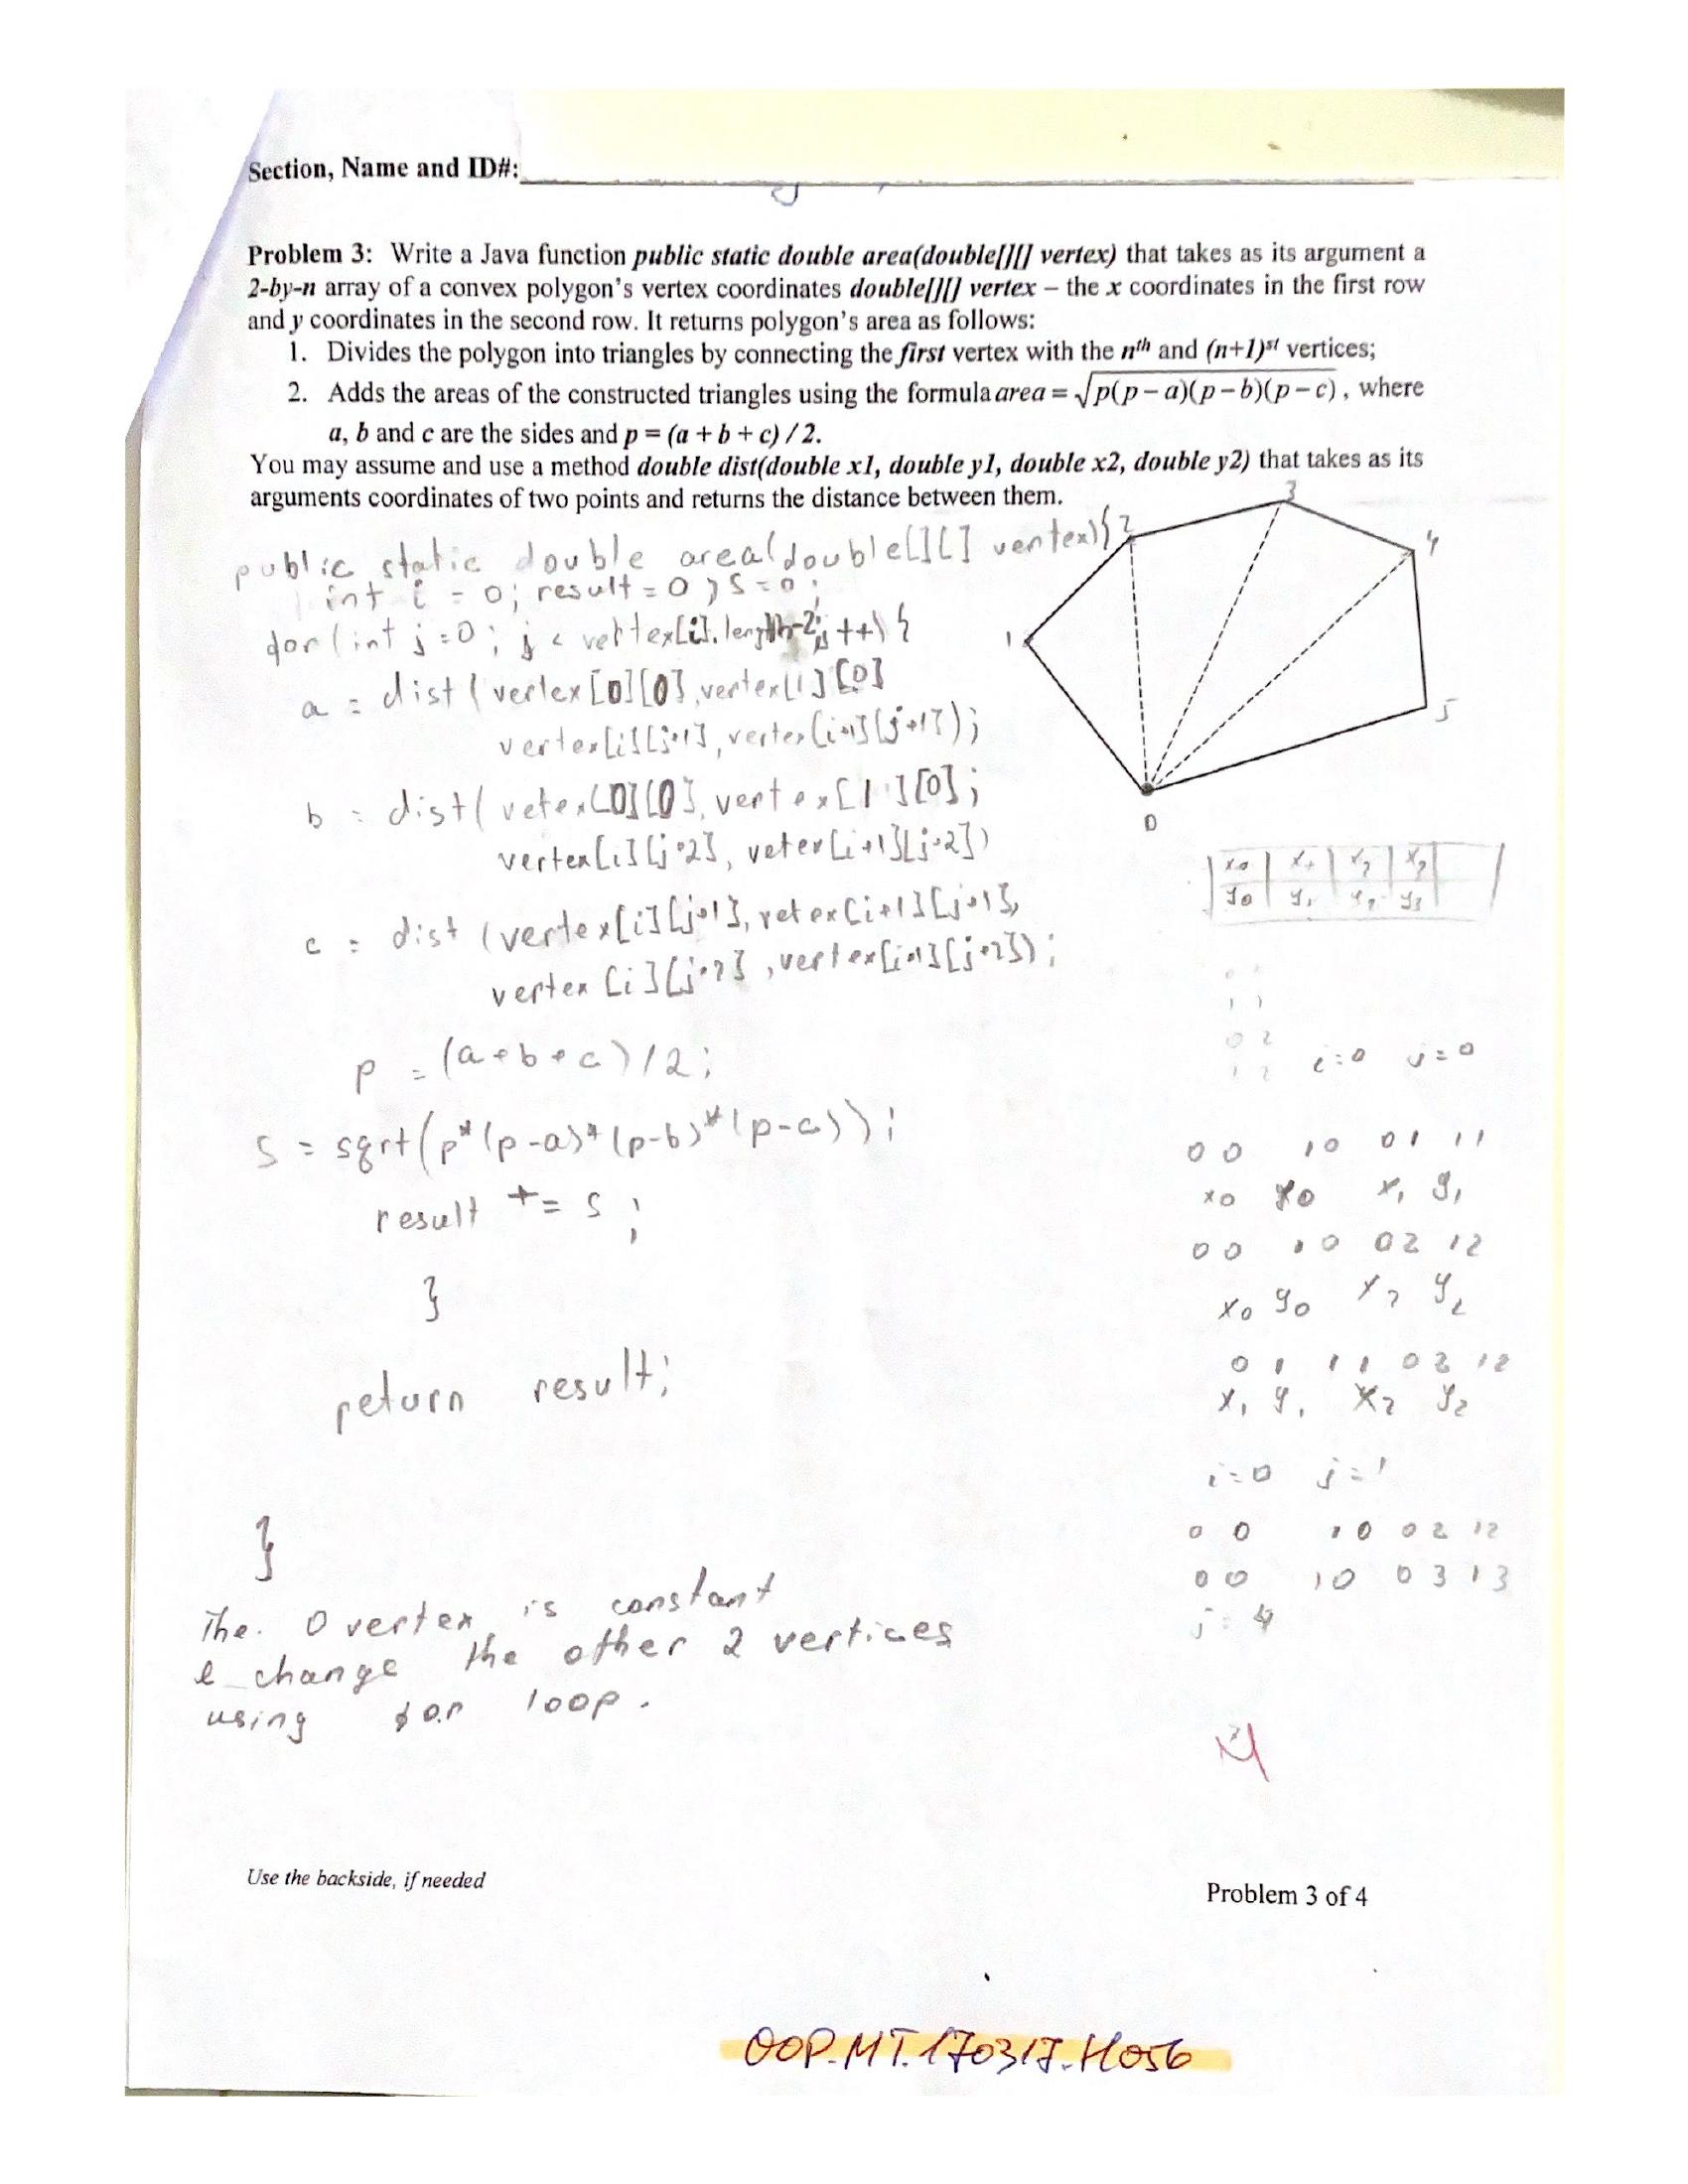 Section, Name and ID#:
Problem 3: Write a Java function public static double area(double[][] vertex) that takes as its argument a
2-by-n array of a convex polygon's vertex coordinates double[][] vertex – the x coordinates in the first row
and y coordinates in the second row. It returns polygon's area as follows:
1. Divides the polygon into triangles by connecting the first vertex with the nth and (n+1)st vertices;
2. Adds the areas of the constructed triangles using the formula area = √p(p − a)(p − b)(p − c) , where
a, b and c are the sides and p = (a + b + c) / 2.
You may assume and use a method double dist(double x1, double y1, double x2, double y2) that takes as its
arguments coordinates of two points and returns the distance between them.
public static double area(double[][] vertex){
int i = 0; result = 0; S = 0;
for (int j = 0; j < vertex[i].length-2; j++) {
a = dist(vertex[0][0], vertex[1][0]
vertex[i][j+1], vertex[i+1][j+1]);
b = dist(vetex[0][0], vertex[1][0];
vertex[i][j+2], vetex[i+1][j+2])
c = dist (vertex[i][j+1], vetex[i+1][j+1],
vertex[i][j+2], vertex[i+1][j+2]);
p = (a+b+c)/2;
S = sqrt(p*(p-a)*(p-b)*(p-c));
result += S;
}
return result;
}
The 0 vertex is constant
change the other 2 vertices
using for loop.
3
2
4
1
5
0
x0 x1 x2 x3
y0 y1 y2 y3
1 1
0 2
1 2
i=0 j=0
0 0 1 0 0 1 1 1
x0 y0 x1 y1
0 0 1 0 0 2 1 2
x0 y0 x2 y2
0 1 1 1 0 2 1 2
x1 y1 x2 y2
i=0 j=1
0 0 1 0 0 2 1 2
0 0 1 0 0 3 1 3
j = 4
Use the backside, if needed
Problem 3 of 4
OOP.MT.170317.H056